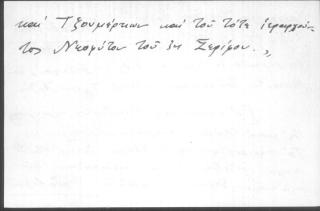 καί Τζουμέρκων καί τοῦ τότε ἱεραρχοῦν-
τος Νεοφύτου τοῦ ἐκ